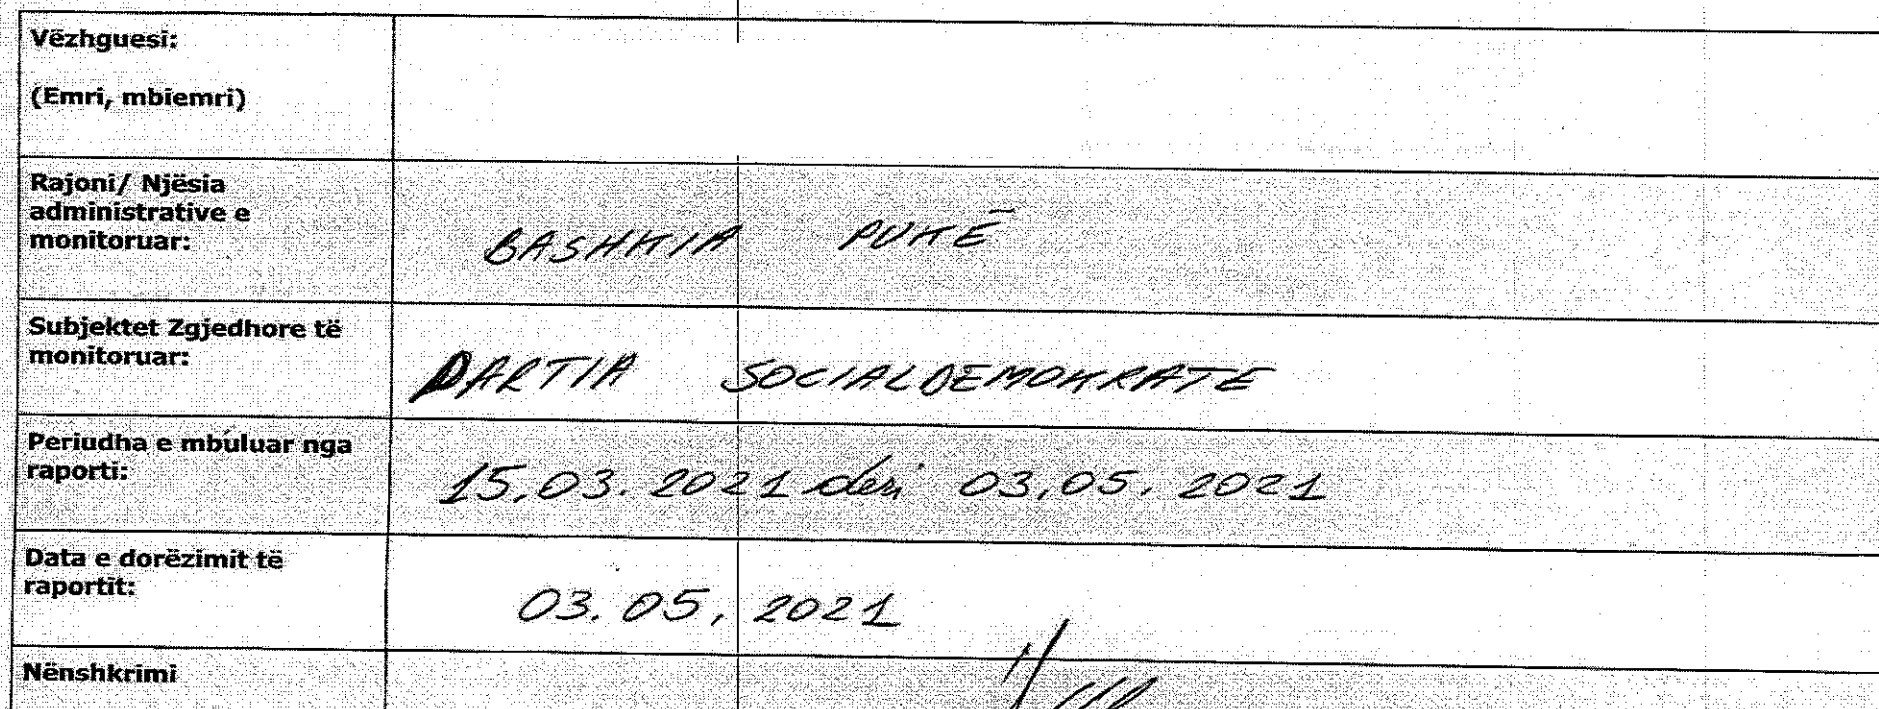 Vëzhguesi:
(Emri, mbiemri)
Rajoni/ Njësia
administrative e
monitoruar:
BASHKIA PUKË
Subjektet Zgjedhore të
monitoruar:
PARTIA SOCIALDEMOKRATE
Periudha e mbuluar nga
raporti:
15.03.2021 deri 03.05.2021
Data e dorëzimit të
raportit:
03.05.2021
Nënshkrimi